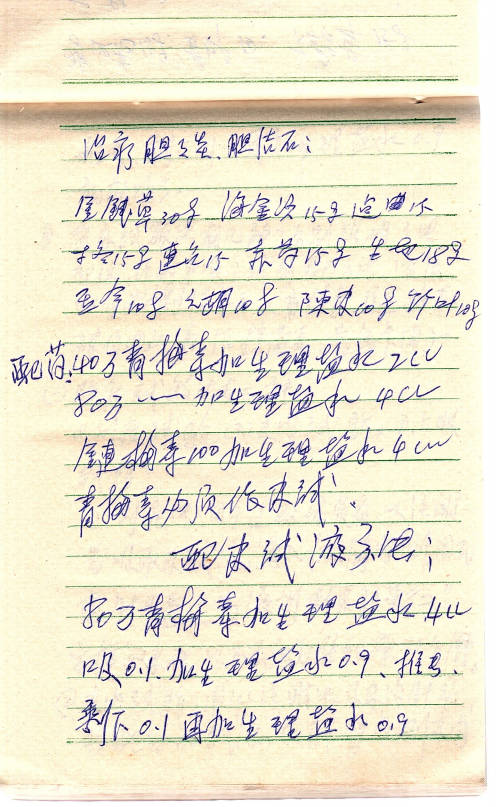 治疗胆炎、胆结石：
金钱草30g 海金沙15g 15
15g 连召15 赤芍15g 生地18g
黄今10g 元胡10g 陈皮10g 竹叶10g
配药：40万青梅素加生理盐水2CC
80万 — 加生理盐水 4CC
链梅素100加生理盐水4CC
青梅素必须作皮试。
配皮试液方法：
80万青梅素加生理盐水4CC
吸0.1.加生理盐水0.9、推
剩下0.1再加生理盐水0.9